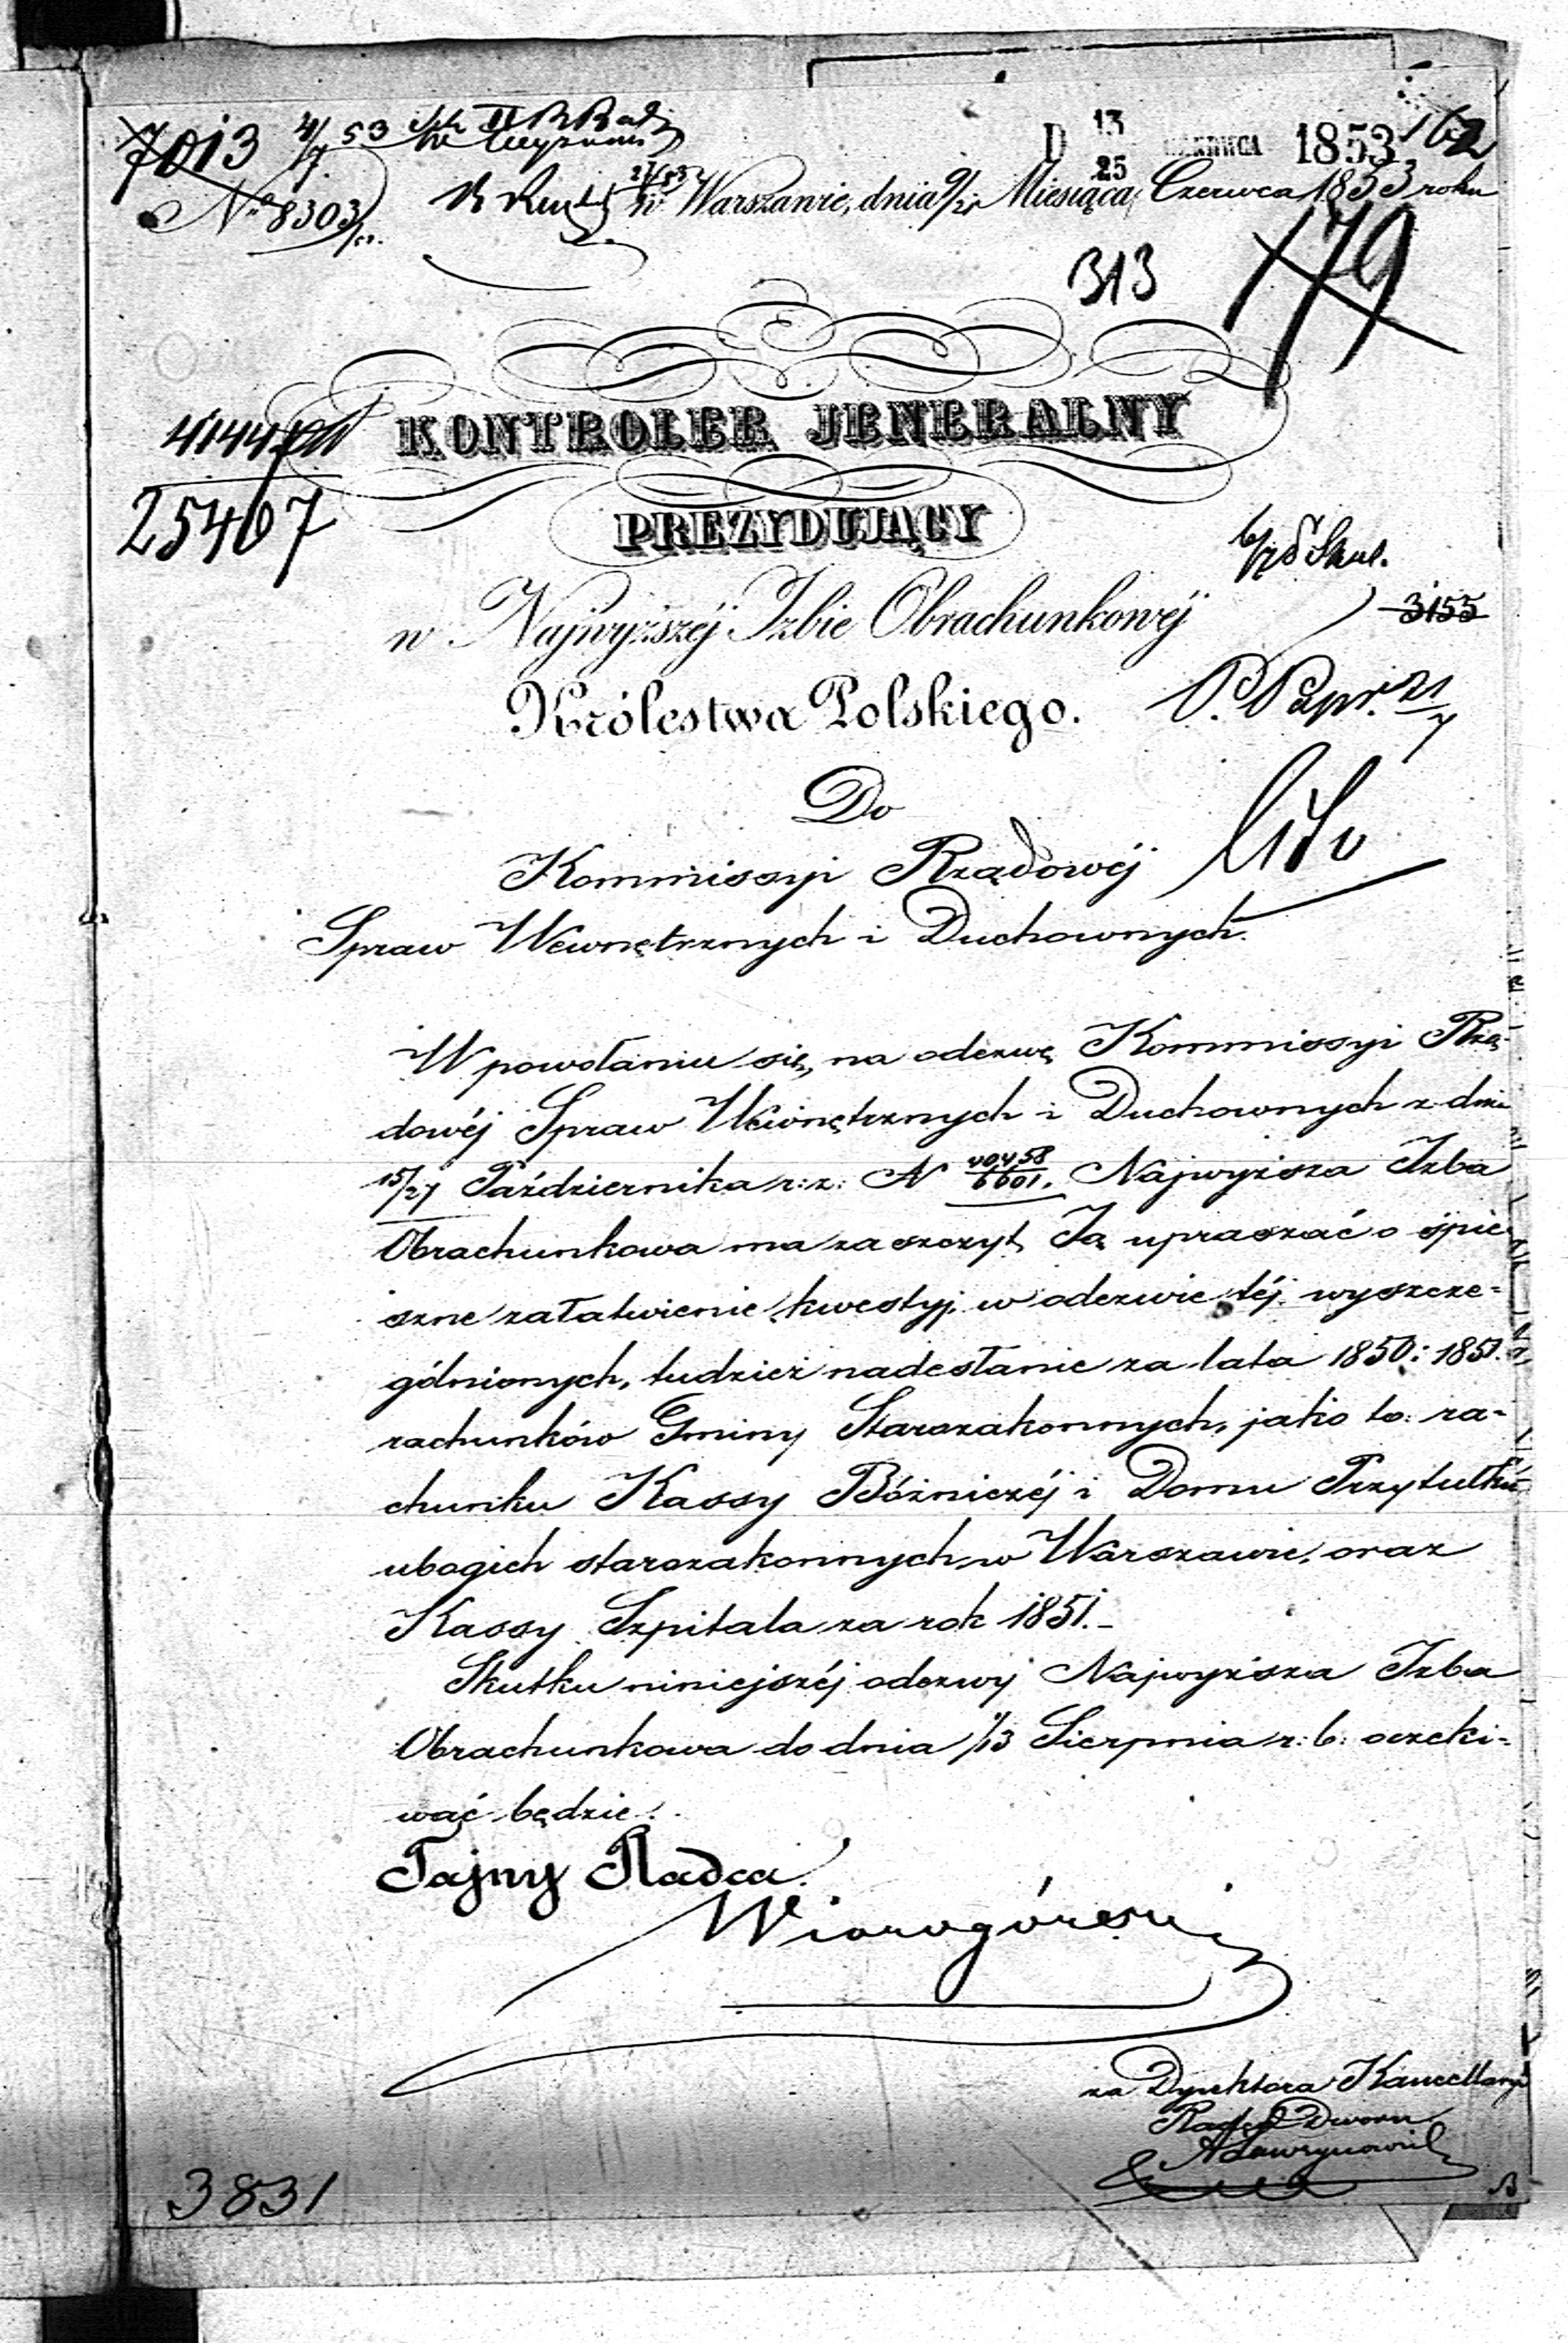 7013 4/7 53
D 13/25 CZERWCA 1853 162
№ 8303 w Warszawie, dnia 9/21 Miesiąca Czerwca 1853 roku
313 179
KONTROLER JENERALNY
25407
PREZYDUJĄCY
w Najwyższéj Izbie Obrachunkowéj
3155
Królestwa Polskiego.
Do
Kommissyi Rządowéj
Spraw Wewnętrznych i Duchownych.
W powołaniu się, na odezwę Kommissyi Rzą-
dowéj Spraw Wewnętrznych i Duchownych z dnia
15/27 Października r: z: N 40458/6601. Najwyższa Izba
Obrachunkowa ma zaszczyt Ją upraszać o śpie-
szne załatwienie kwestyj w odezwie téj wyszcze=
gólnionych, tudzież nadesłanie za lata 1850: 1851.
rachunków Gminy Starozakonnych, jako to: ra-
chunku Kassy Bóżniczéj i Domu Przytułku
ubogich starozakonnych w Warszawie, oraz
Kassy Szpitala za rok 1851.-
Skutku niniejszéj odezwy Najwyższa Izba
Obrachunkowa do dnia 1/13 Sierpnia r: b: oczeki=
wać będzie.
Tajny Radca
za Dyrektora Kancellaryi
Radca Dworu
3831